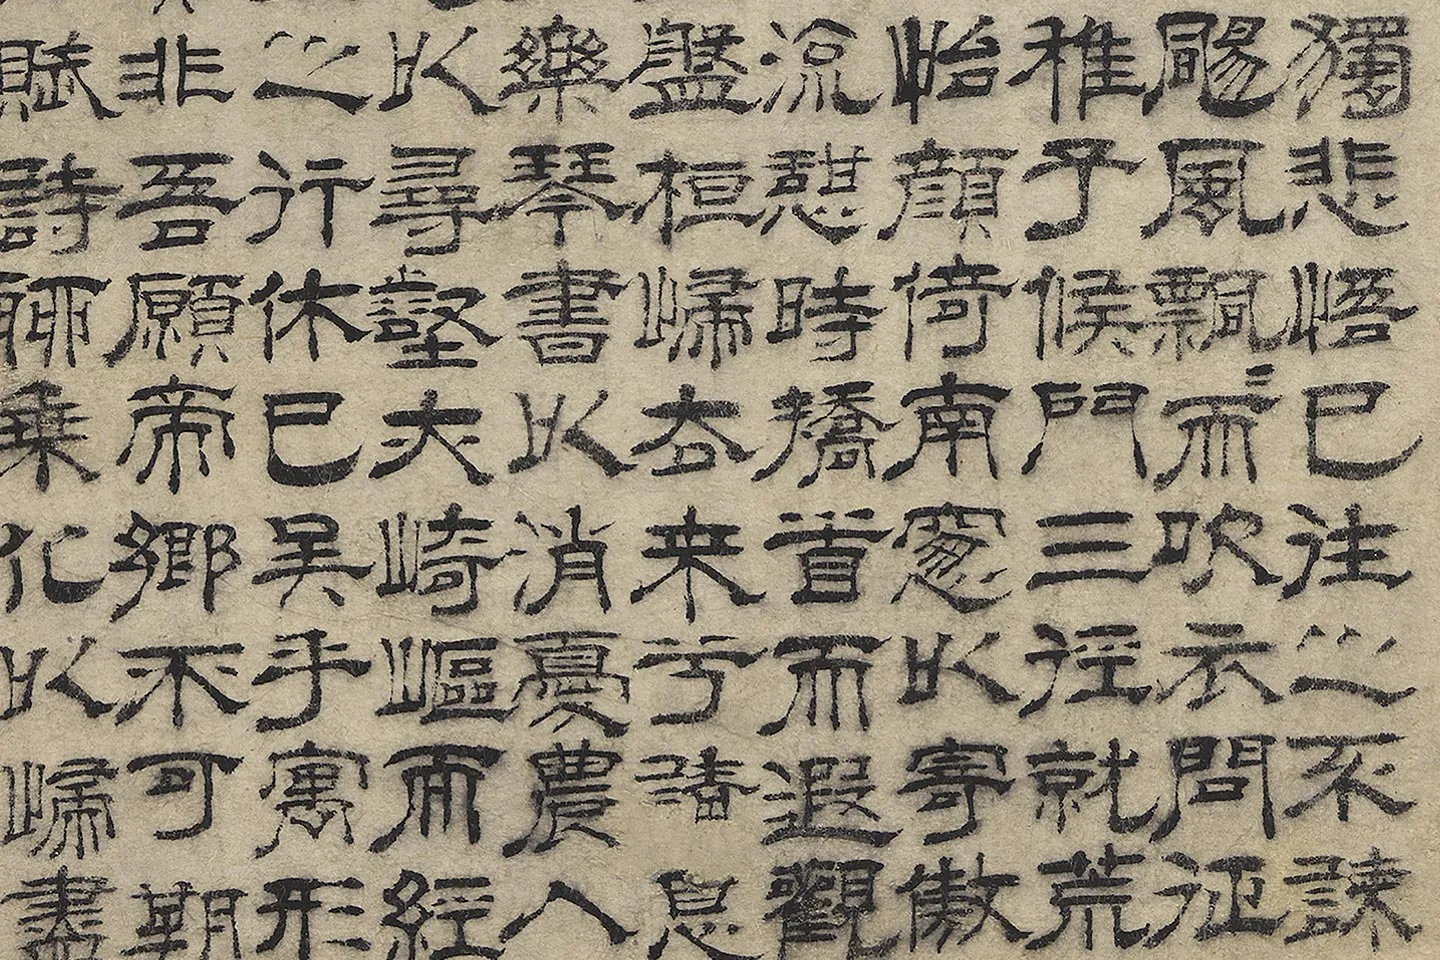 獨悲悟已往之不諫
颺風飄〻而吹衣問征
稚子候門三徑就荒
怡顏倚南窻以寄傲
流憩時撟首而遐觀
盤桓歸去来兮請息
樂琴書以消憂農人
以尋壑亦崎嶇而經
之行休已矣乎寓形
非吾願帝鄉不可期
賦詩聊乘化以歸盡